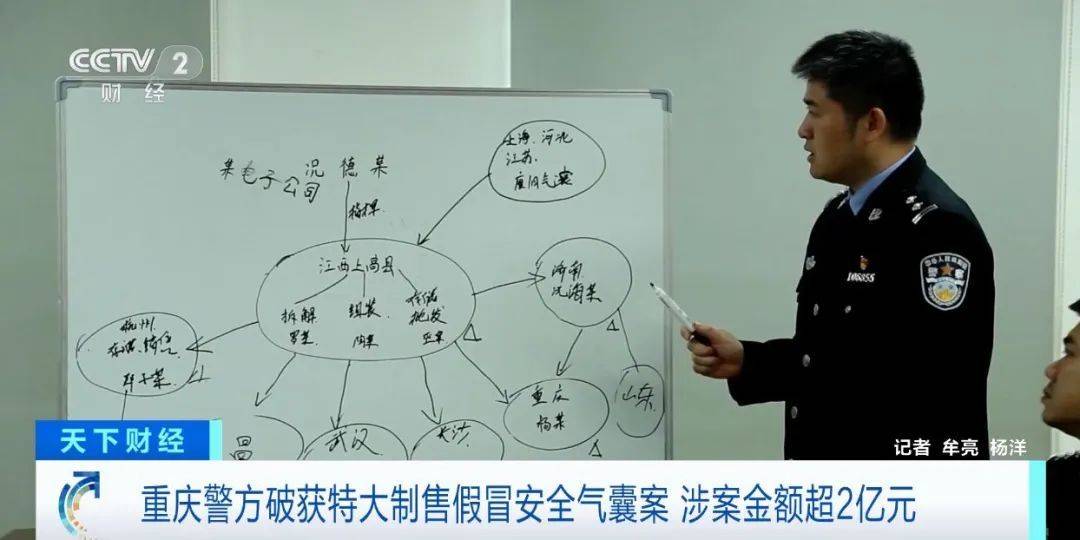 CCTV 2
财经
某电子公司 况德某
指挥
上海、河北
江苏、
废旧气囊
江西上高县
拆解
组装
批发
济南
况海某
杭州
重庆
杨某
山东
武汉
长沙
106355
天下财经
记者 牟亮 杨洋
重庆警方破获特大制售假冒安全气囊案 涉案金额超2亿元